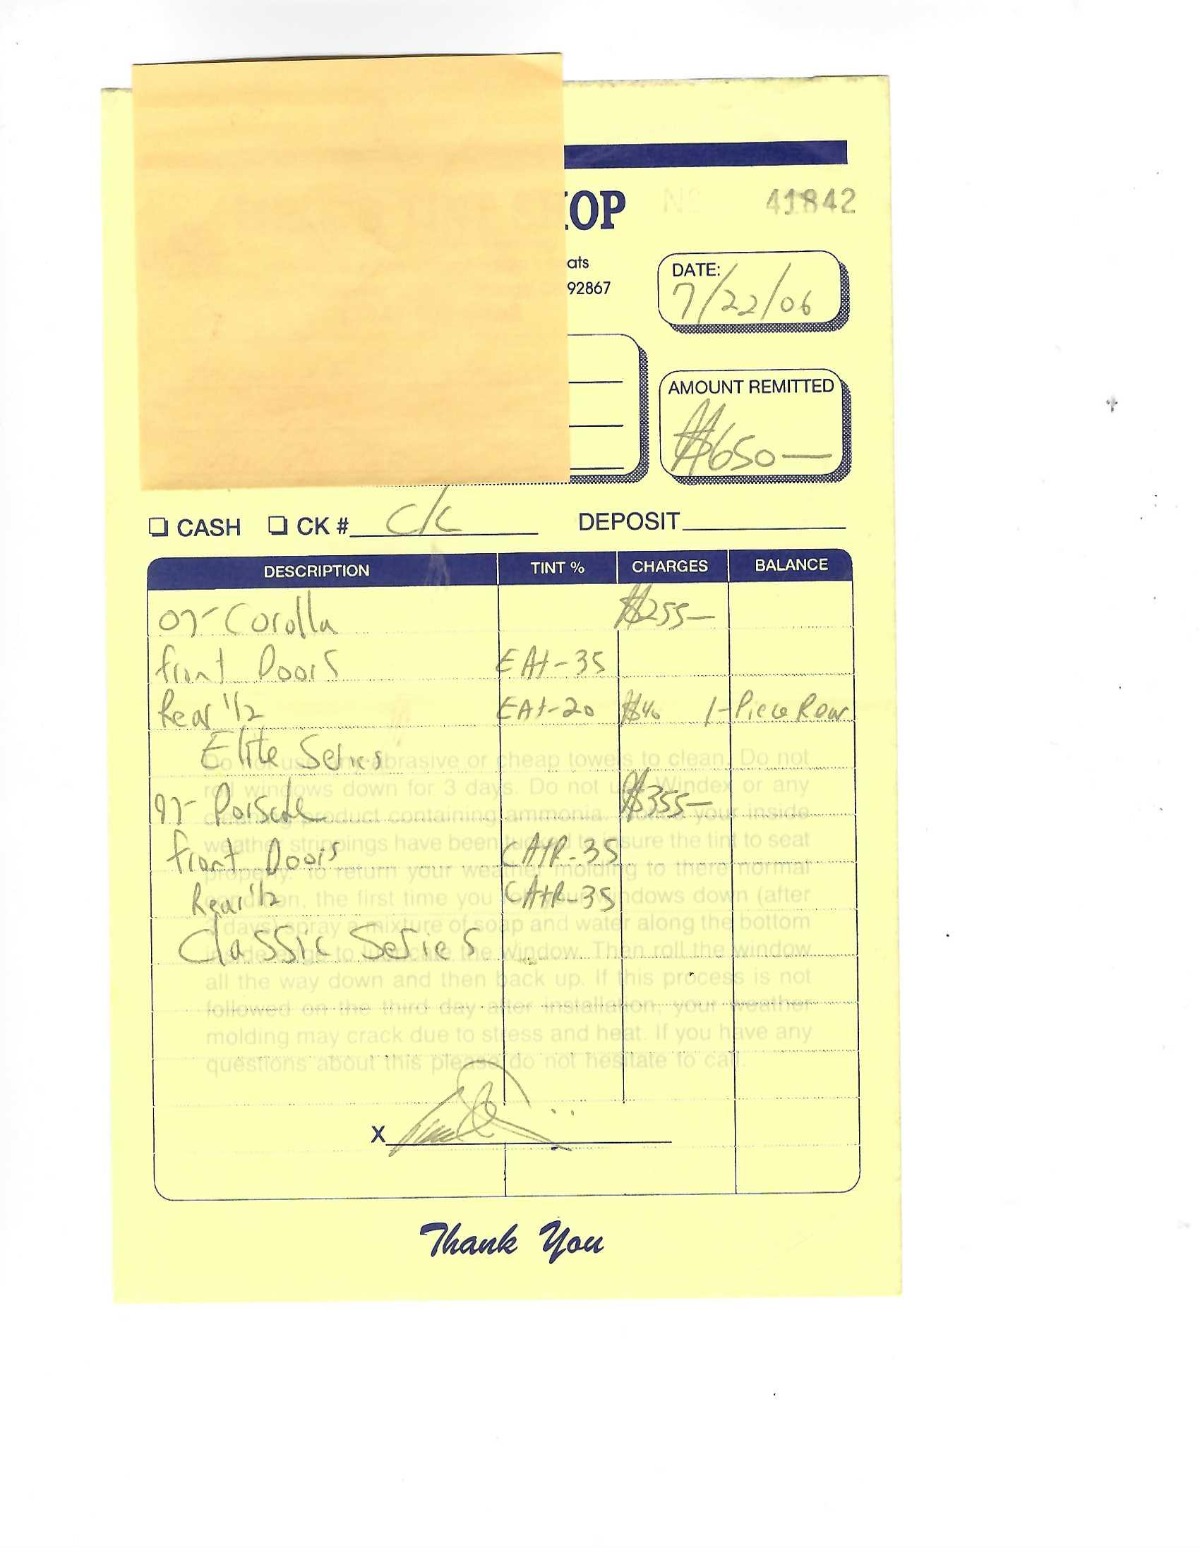 41842
ats
92867
DATE:
7/22/06
AMOUNT REMITTED
$650—
CASH CK # c/c DEPOSIT
DESCRIPTION TINT % CHARGES BALANCE
07- Corolla $255—
front Doors EAt-35
Rear 1/2 EAt-20 $40 1-Piece Rear
Elite Series
97- Porsche $355—
front Doors CAtR-35
Rear 1/2 CAtR-35
Classic Series
abrasive or cheap towels to clean. Do not
windows down for 3 days. Do not Windex or any
product containing ammonia. your inside
weather strippings have been to insure the tint to seat
to return your molding to there normal
the first time you windows down (after
days) spray a mixture of soap and water along the bottom
the window. Then roll the window
all the way down and then back up. If this process is not
followed on the third day after installation, your weather
molding may crack due to stress and heat. If you have any
questions about this please do not hesitate to call.
X
Thank You